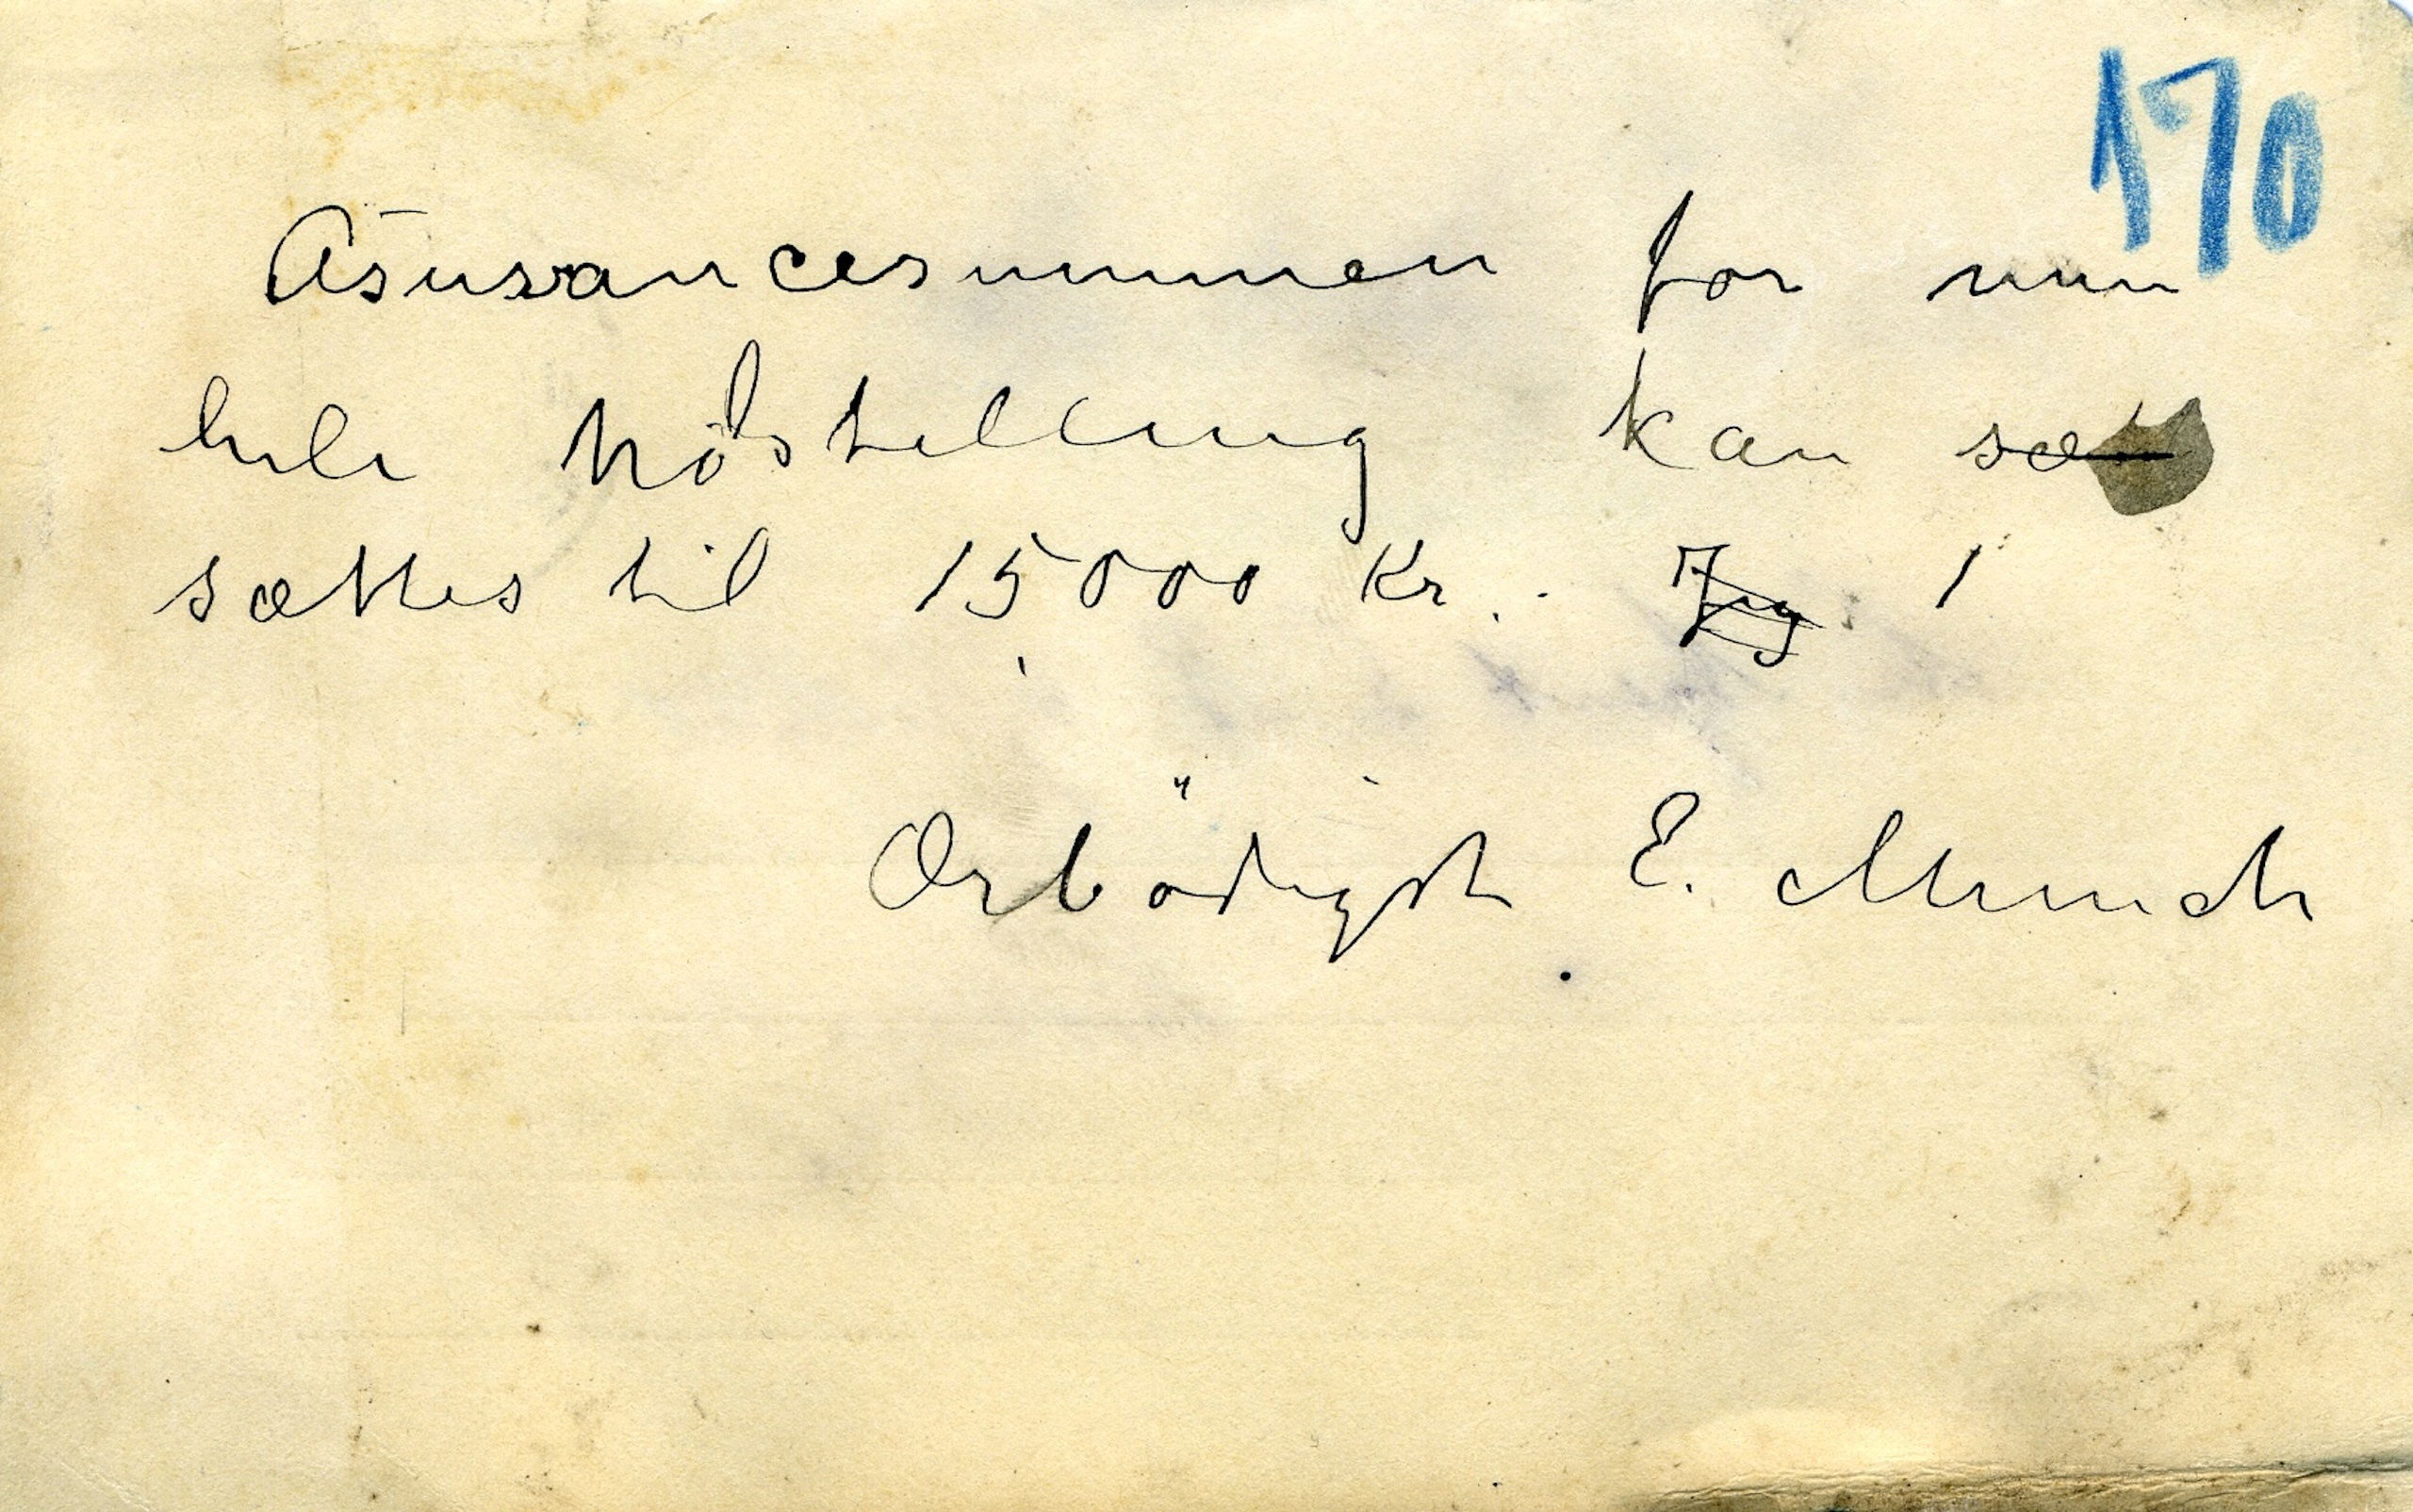 170
Asusancesummen for min
hele Udstelling kan sætt
sættes til 15000 Kr. Jeg
Ærbödigst E. Munch